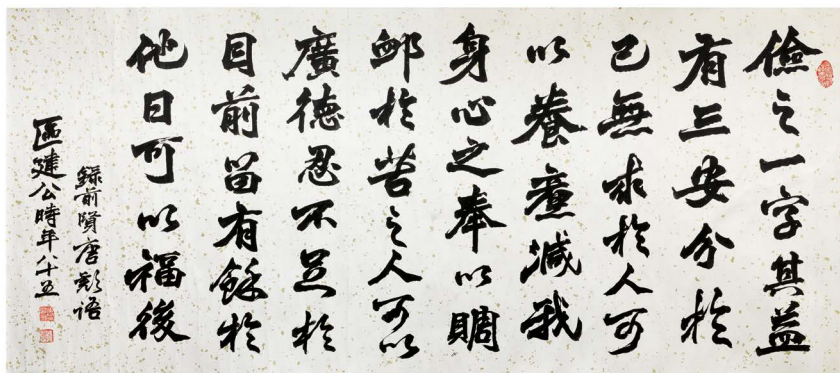 儉之一字其益
有三安分於
己無求於人可
以養廉減我
身心之奉以賙
卹於苦之人可以
廣德忍不足於
目前留有餘於
他日可以福後
錄前賢唐彪語
區建公時年八十五